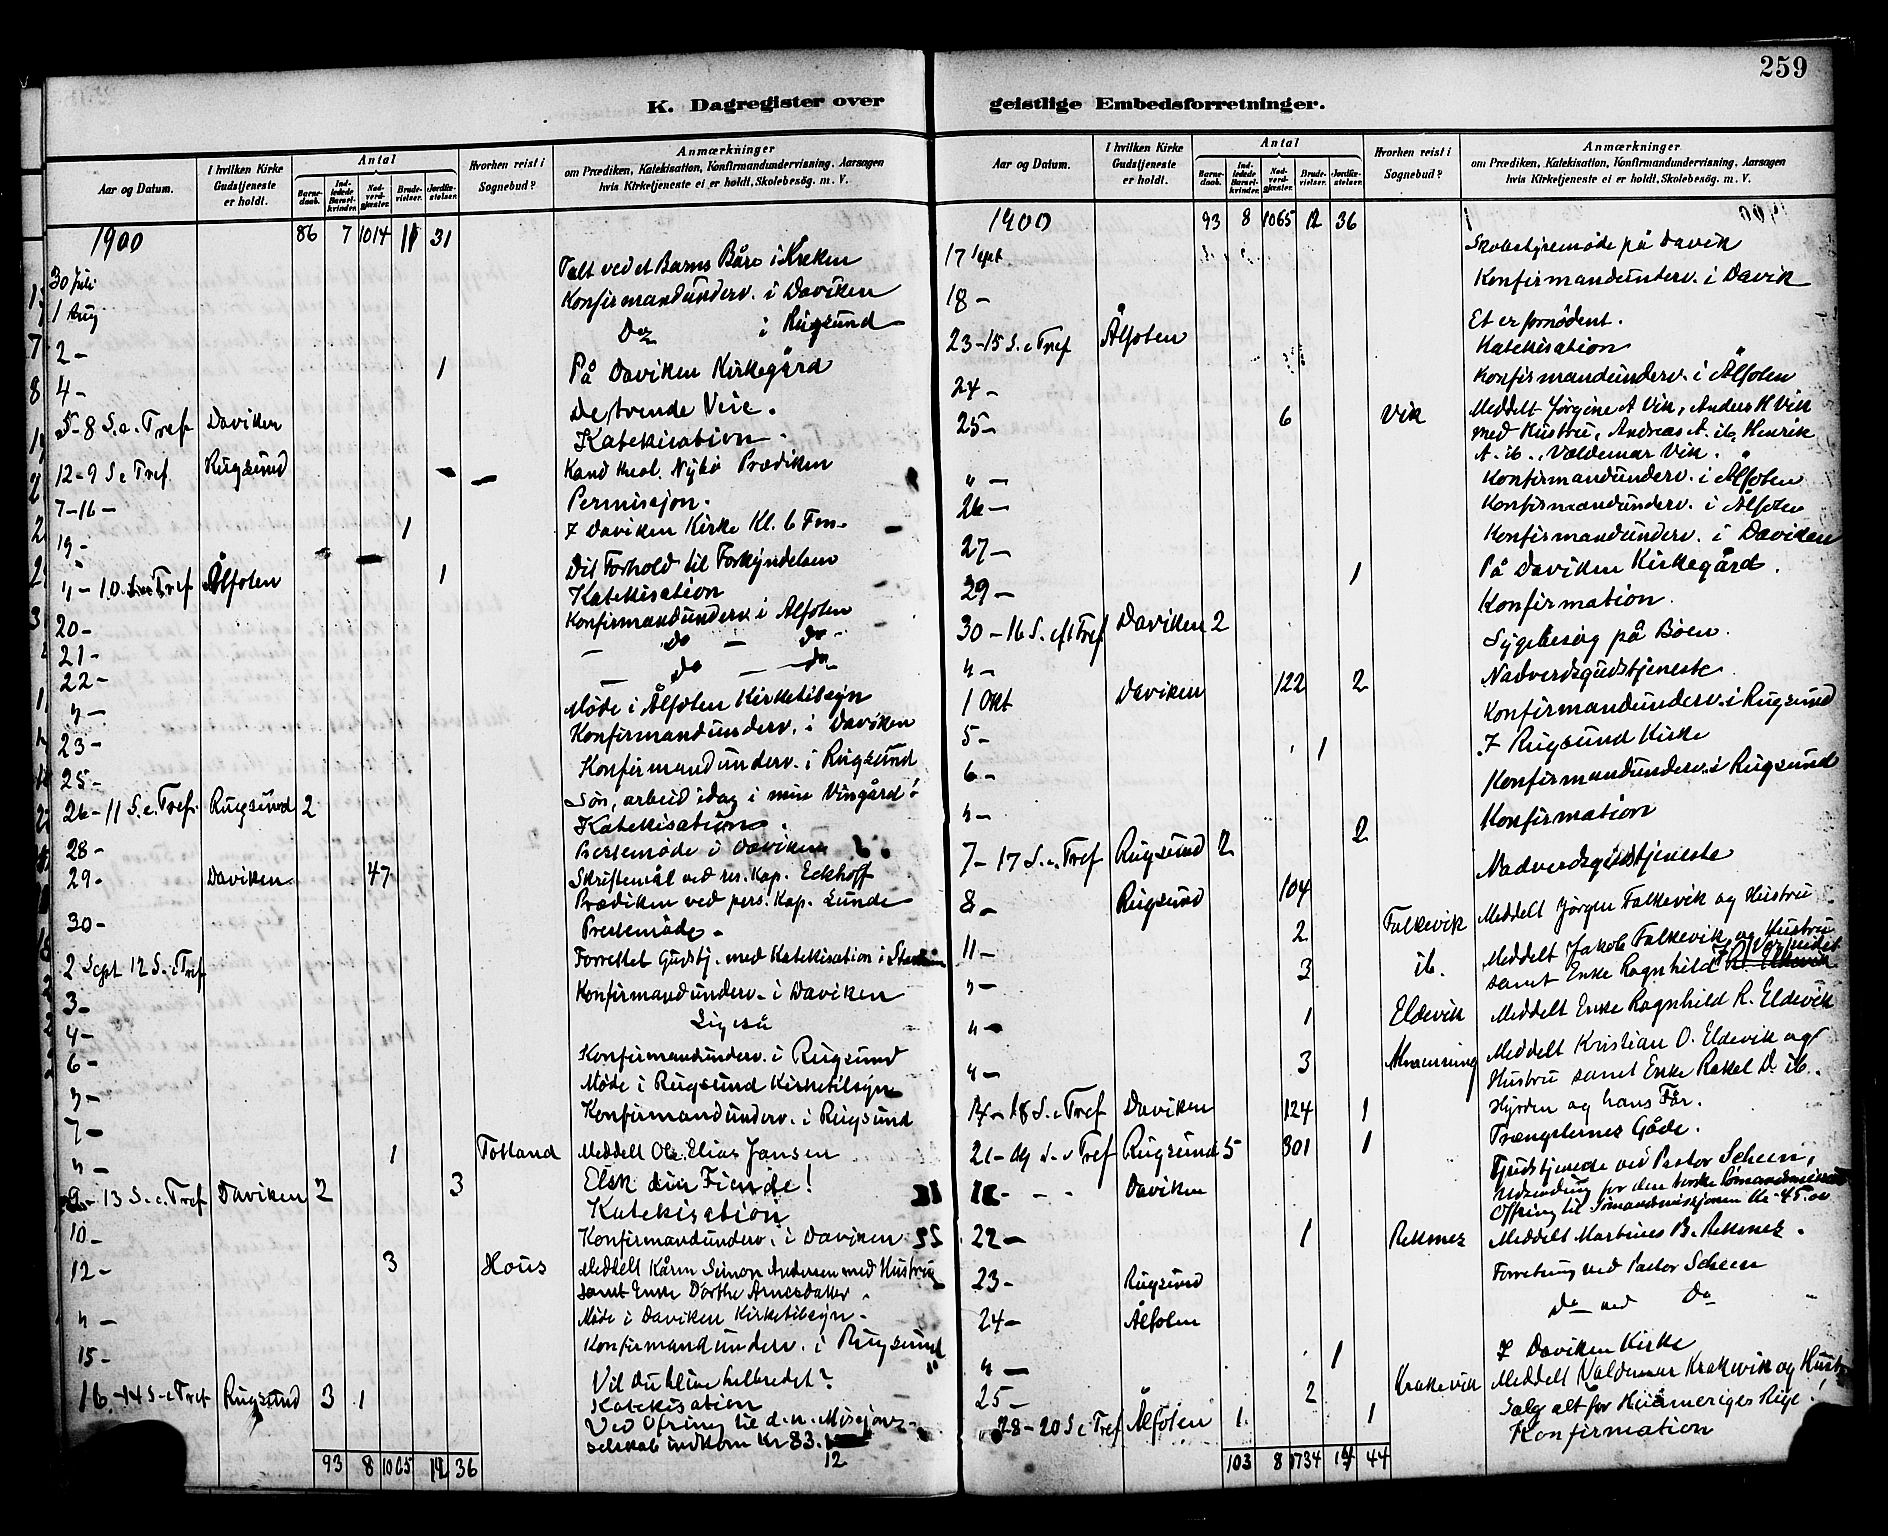 259
K. Dagregister over
Aar og Datum.
I hvilken Kirke Gudstjeneste er holdt.
Antal
Barnedaab.
Indledede Barselkvinder.
Nadverdgjæster.
Brudevielser.
Jordfæstelser.
Hvorhen reist i Sognebud?
Anmærkninger
om Prædiken, Katekisation, Konfirmandundervisning, Aarsagen
hvis Kirketjeneste ei er holdt, Skolebesøg. m. V.
1900 86 7 1014 11 31
30 Juli Talt ved et Barns Båre i Kirken
1 Aug Konfirmandunderv. i Daviken
2 - Do i Rugsund
4 - 1 På Daviken Kirkegård
5 - 8 S. e. Tref Daviken De tvende Veie.
Katekisation.
12 - 9 S e Tref. Rugsund Kand theol. Nybø Prædiken
7-16 - Permisjon.
19 - 1 I Daviken Kirke Kl. 6 Em.
" - 10. S e Tref Ålfoten 1 Dit Forhold til Forkyndelsen
Katekisation
20 - Konfirmandunderv. i Ålfoten
21 - - Do - Do -
22 - - Do - Do
" - Møde i Ålfoten Kirketilsyn
23 - Konfirmandunderv. i Daviken
25 - Konfirmandunderv. i Rugsund
26 - 11 S. e. Tref. Rugsund 2 Søn, arbeid idag i min Vingård!
Katekisation.
28 - Prestemøde i Daviken
29 - Daviken 47 Skriftemål ved res. Kap. Eckhoff
Prædiken ved pers. Kap. Lunde
30 - Prestemøde.
2 Sept 12 S. e Tref Forrettet Gudstj. med Katekisation i
3 - Konfirmandunderv. i Daviken
4 - Ligeså
6 - Konfirmandunderv. i Rugsund
" - Møde i Rugsund Kirketilsyn
7 - Konfirmandunderv. i Rugsund
" - 1 Totland Meddelt Ole Elias Jansen
9 - 13 S. e. Tref Daviken 2 3 Elsk din Fiende!
Katekisation
10 - Konfirmandunderv. i Daviken
12 - 3 Hous Meddelt Kårm Simon Andersen med Hustru
samt Enke Dorthe Arnesdatter.
" - Møde i Daviken Kirketilsyn.
15 - Konfirmandunderv. i Rugsund
16 - 14 S e Tref Rugsund 3 1 Vil du blive helbredet?
Katekisation
Ved Ofring til d. n. Misjons-
selskab indkom Kr 83.
12
93 8 1065 12 36
geistlige Embedsforretninger.
Aar og Datum.
I hvilken Kirke Gudstjeneste er holdt.
Antal
Barnedaab.
Indledede Barselkvinder.
Nadverdgjæster.
Brudevielser.
Jordfæstelser.
Hvorhen reist i Sognebud?
Anmærkninger
om Prædiken, Katekisation, Konfirmandundervisning, Aarsagen
hvis Kirketjeneste ei er holdt, Skolebesøg. m. V.
1900 93 8 1065 12 36
17 Sept Skolestyremøde på Davik
18 - Konfirmandunderv. i Davik
23 - 15 S. e Tref Ålfoten Et er fornødent.
Katekisation
24 - Konfirmandunderv. i Ålfoten
25 - 6 Vik Meddelt Jørgine A Vik, Anders H Vik
med Hustru, Andreas A. ib, Henrik
A. ib., Valdemar Vik.
" - Konfirmandunderv. i Ålfoten
26 - Konfirmandunderv. i Ålfoten
27 - Konfirmandunderv. i Daviken
29 - 1 På Daviken Kirkegård.
30 - 16 S. eft Tref Daviken 2 Konfirmation.
" - Sygebesøg på Böen.
1 Okt Daviken 122 2 Nadverdsgudstjeneste
5 - Konfirmandunderv. i Rugsund
6 - 1 I Rugsund Kirke
" - Konfirmandunderv. i Rugsund
7 - 17 S. e. Tref Rugsund 2 2 Konfirmation
8 - Rugsund 104 Nadverdsgudstjeneste
11 - 2 Falkevik Meddelt Jørgen Falkevik og Hustru
" - 3 ib. Meddelt Jakob Falkevik og Hustru
samt Enke Ragnhild
" - 1 Eldevik Meddelt Enke Ragnhild R. Eldevik
" - 3 Meddelt Kristian O. Eldevik og
Hustru samt Enke Rakel D. ib.
14 - 18 S. e Tref Daviken 124 1 Hyrden og hans Får.
21 - 19 S. e Tref Rugsund 5 301 1 Trængslernes Gåde.
- - - Daviken Gudstjeneste ved Pastor Scheen,
for den norske Sømandsmission
Ofring til Sømandsmissjonen Kr. 45.00
22 - 1 Reksnes Meddelt Martinus B. Reksnes.
23 - Rugsund Forretning ved Pastor Scheen
24 - Ålfoten Do ved Do
" - 1 I Daviken Kirke
25 - 2 Krakevik Meddelt Valdemar Krakevik og Hustru
28 - 20 S e Tref Ålfoten 1 1 Salg alt for Himmeriges Rige!
Konfirmation
103 8 1734 14 44